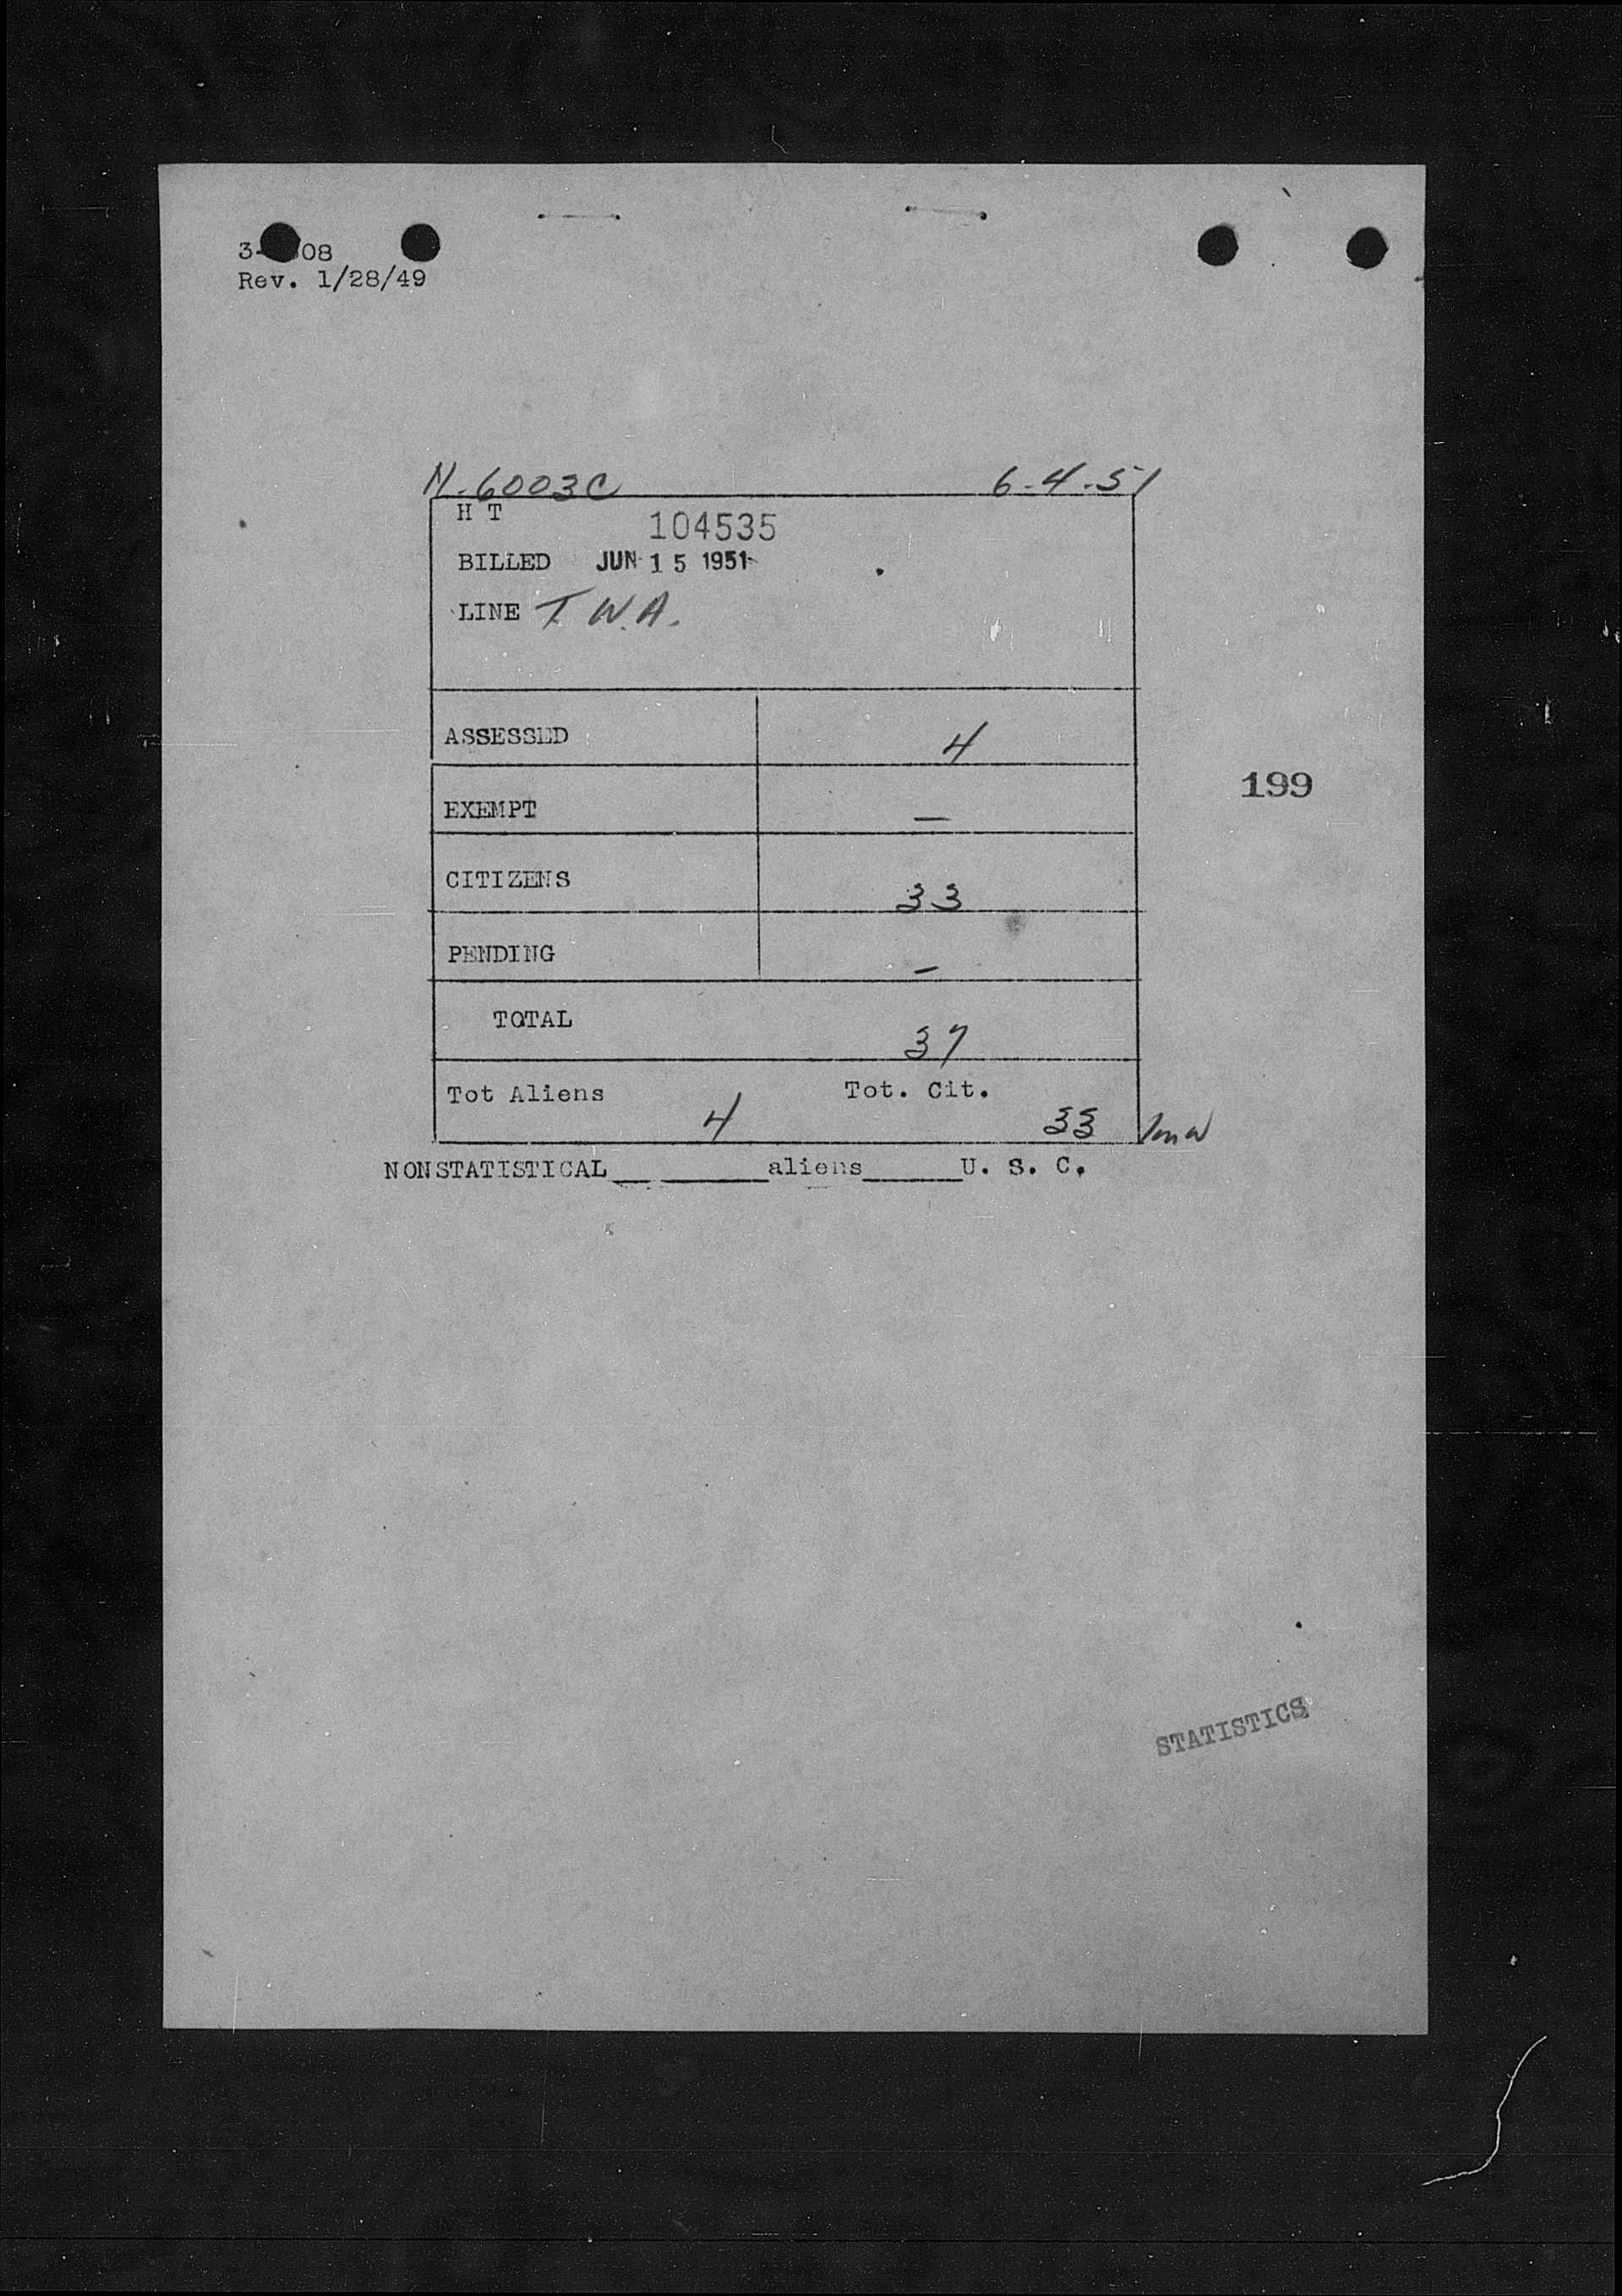 3- 08
Rev. 1/28/49
N-6003C 6-4-51
H T 104535
BILLED JUN 15 1951
LINE T.W.A.
ASSESSED 4
199
EXEMPT —
CITIZENS 33
PENDING —
TOTAL 37
Tot Aliens 4 Tot. Cit. 33
NONSTATISTICAL__________aliens______U. S. C.
STATISTICS